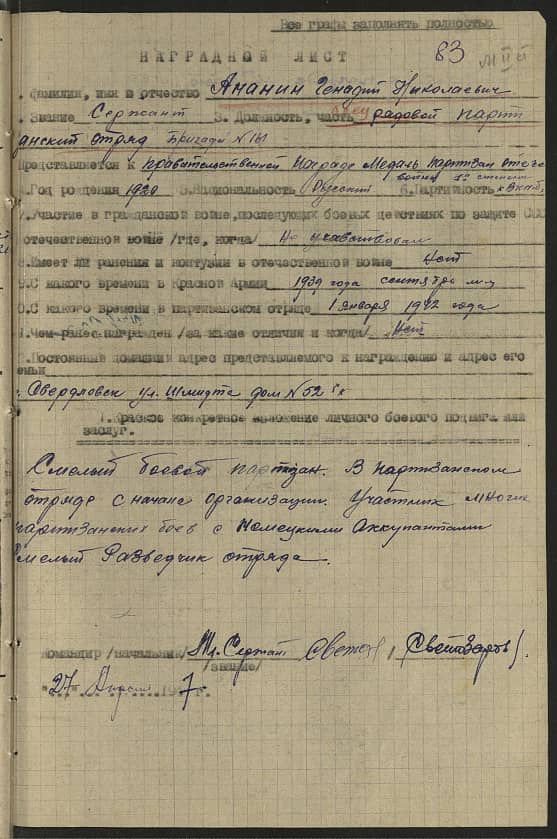 Все графы заполнять полностью
83
НАГРАДНОЙ ЛИСТ
. Фамилия, имя и отчество Ананин Генадий Николаевич
. Звание Сержант 3. Должность, часть рядовой парти
анский отряд Бригады №161
представляется к правительственной Награде Медаль Партизан отече
войны степени
.Год рождения 1920 5.Национальность Русский 6.Партийность канд.
7.Участие в гражданской войне, последующих боевых действиях по защите СССР
отечественной войне /где, когда/ Не участвовал
8.Имеет ли ранения и контузии в отечественной войне Нет
9.С какого времени в Красной Армии 1939 года сентябрь м-ц
0.С какого времени в партизанском отряде 1 января 1942 года
1.Чем ранее награжден /за какие отличия и когда/ Нет
.Постоянный домашний адрес представляемого к награждению и адрес его
семьи
. Свердловск ул. Шмидта дом №52
1.Краткое конкретное изложение личного боевого подвига или
заслуг.
Смелый боевой партизан. В партизанском
отряде с начала организации. Участник многих
партизанских боев с Немецкими Аккупантами
мелый Разведчик отряда.
Командир /начальник/ Мл. Сержант
/звание/
"27" Апреля